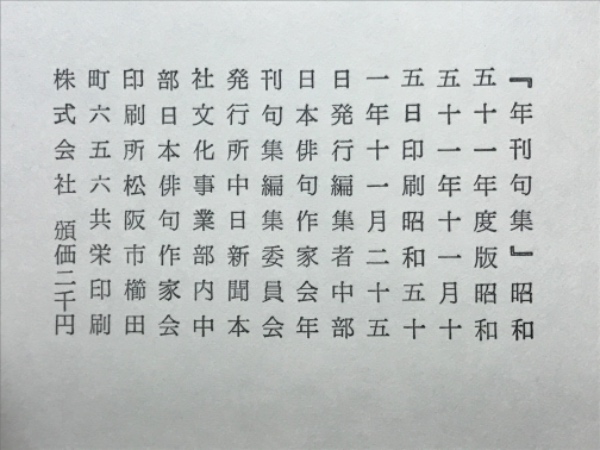 『年刊句集』昭和
五十一年度版昭和
五十一年十一月十
五日印刷昭和五十
一年十一月二十五
日発行編集者中部
日本俳句作家会年
刊句集編集委員会
発行所中日新聞本
社文化事業部内中
部日本俳句作家会
印刷所松阪市櫛田
町六五六共栄印刷
株式会社 頒価二千円